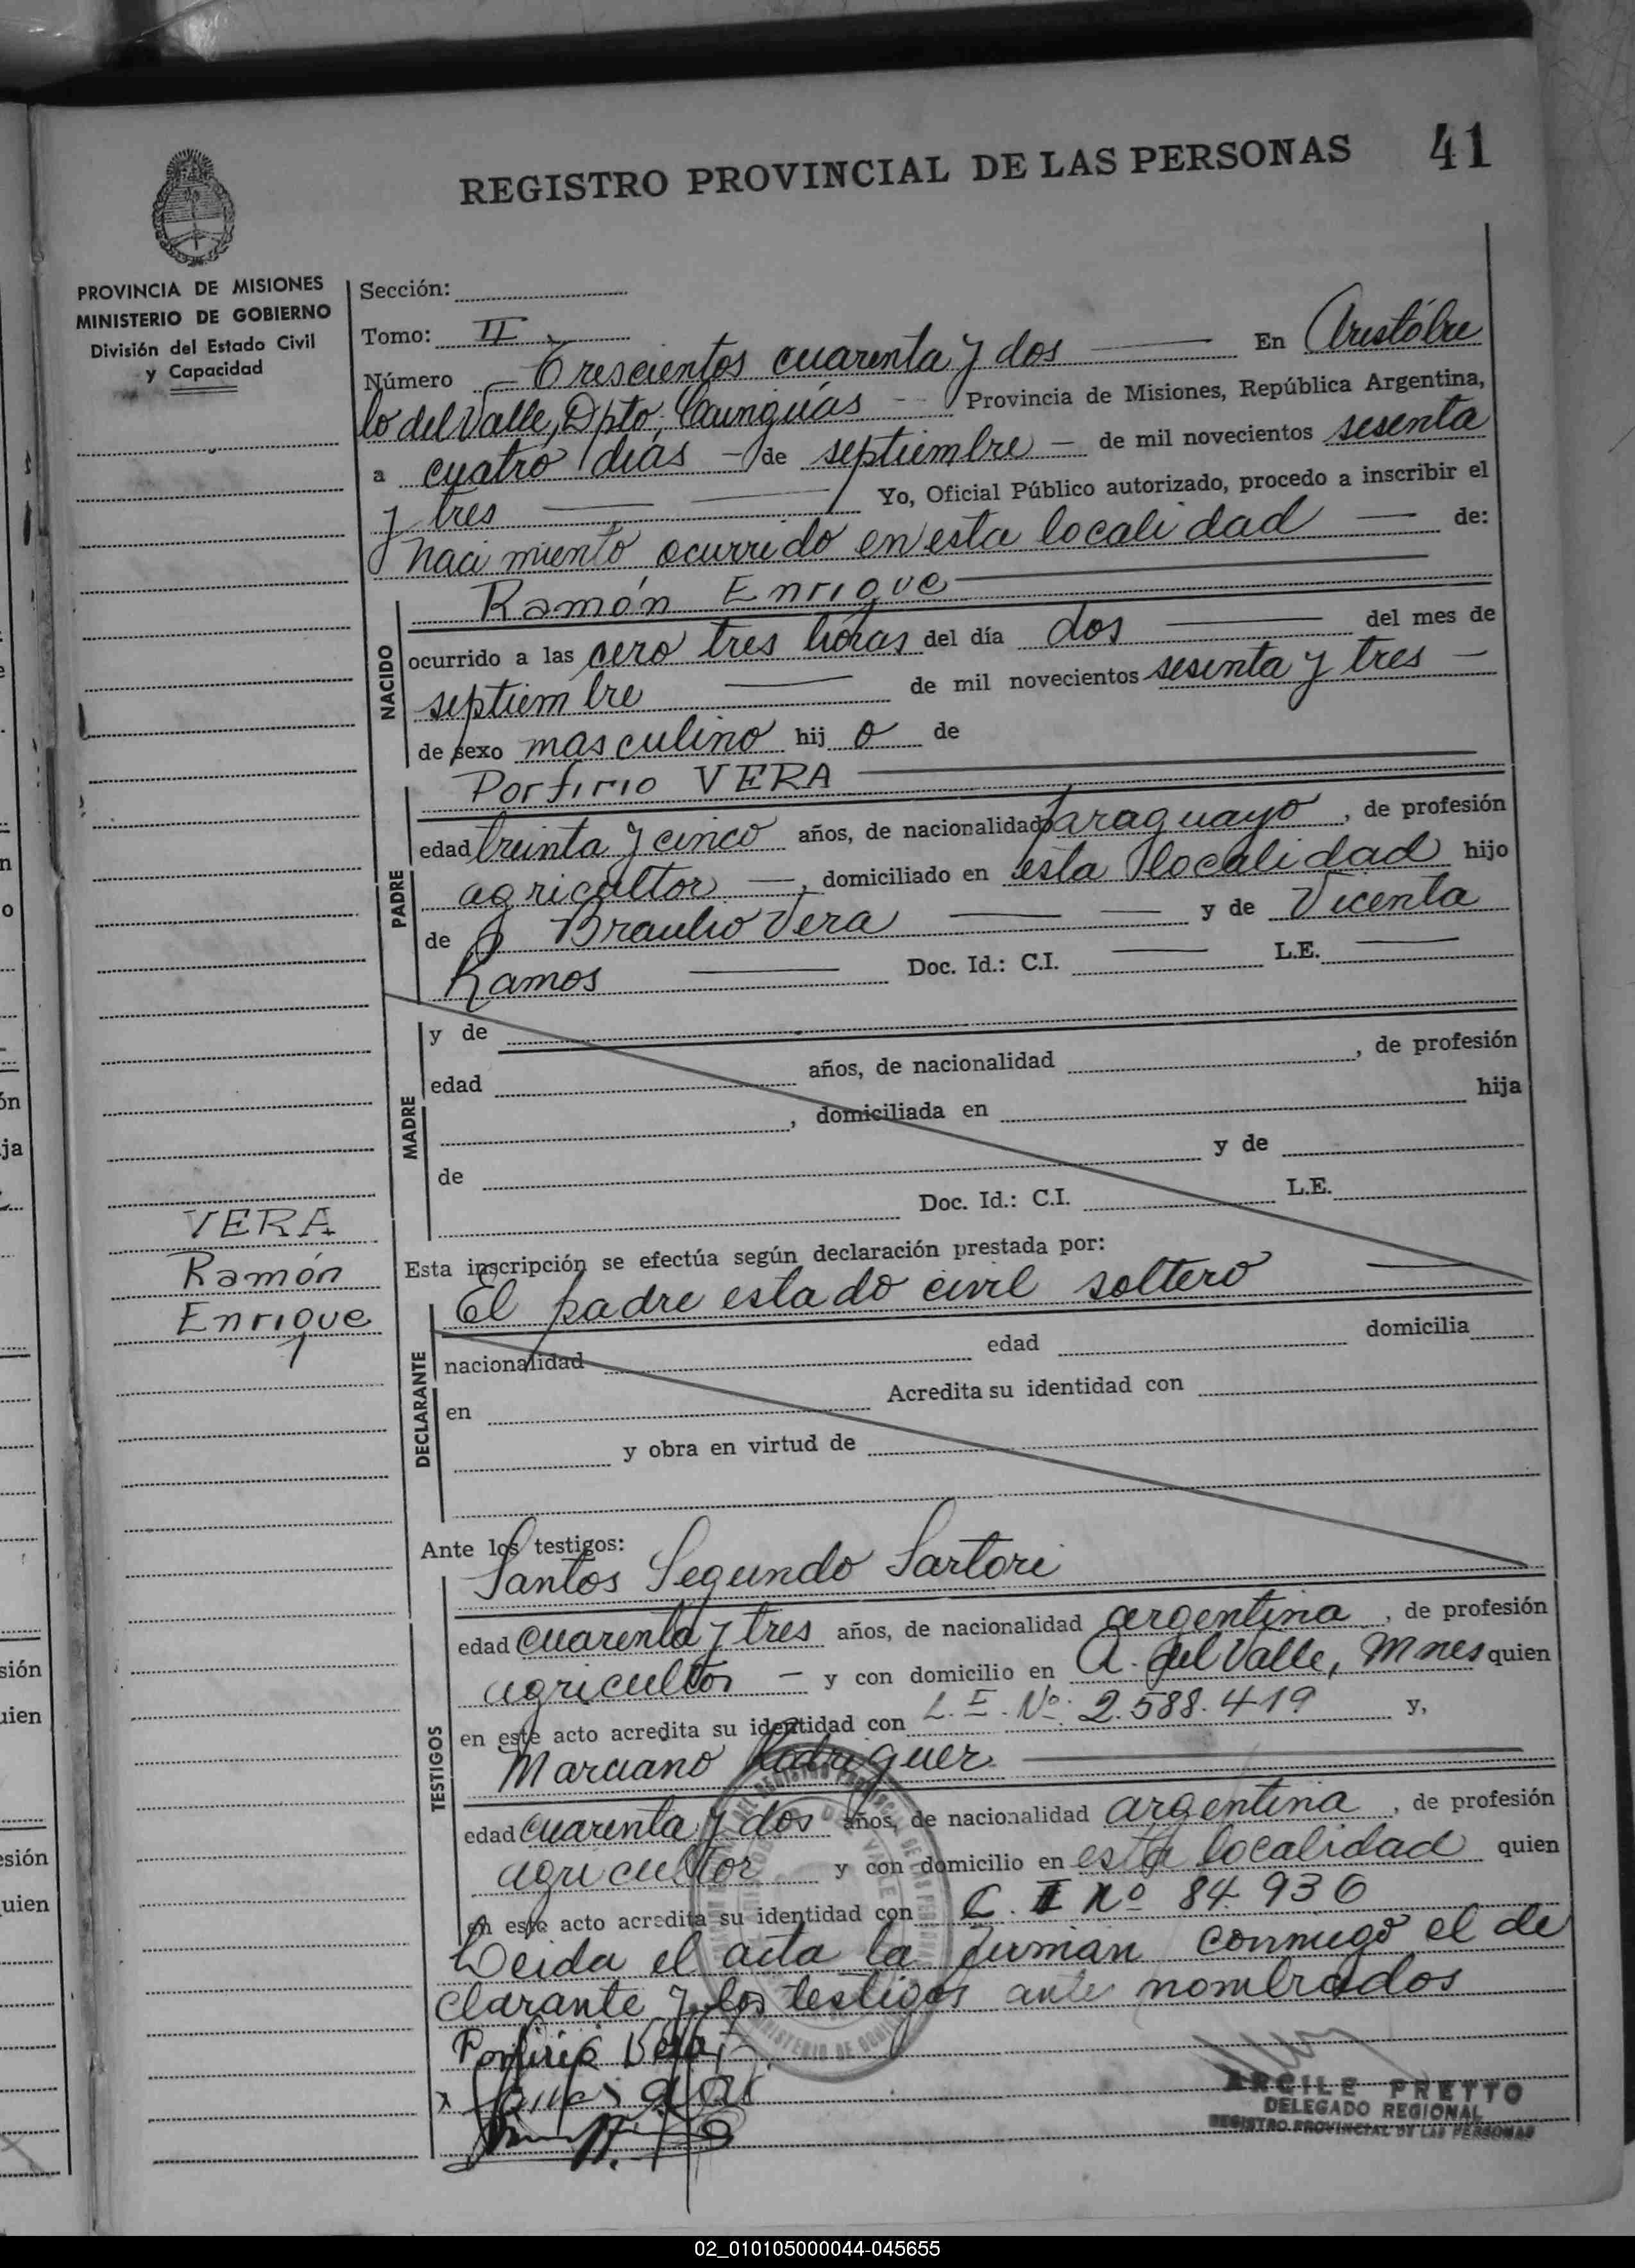 REGISTRO PROVINCIAL DE LAS PERSONAS 41
PROVINCIA DE MISIONES
MINISTERIO DE GOBIERNO
División del Estado Civil
y Capacidad
VERA
Ramón
Enrique
Sección:
Tomo: II
Número Trescientos cuarenta y dos En Aristóbu
lo del Valle, Dpto. Cainguás Provincia de Misiones, República Argentina,
a cuatro días de septiembre de mil novecientos sesenta
y tres Yo, Oficial Público autorizado, procedo a inscribir el
nacimiento ocurrido en esta localidad de:
NACIDO
Ramón Enrique
ocurrido a las cero tres horas del día dos del mes de
septiembre de mil novecientos sesenta y tres
de sexo masculino hij o de
PADRE
Porfirio VERA
edad treinta y cinco años, de nacionalidad paraguayo, de profesión
agricultor, domiciliado en esta localidad hijo
de Braulio Vera y de Vicenta
Ramos Doc. Id.: C.I. L.E.
MADRE
y de
edad años, de nacionalidad , de profesión
, domiciliada en hija
de y de
Doc. Id.: C.I. L.E.
Esta inscripción se efectúa según declaración prestada por:
DECLARANTE
El padre estado civil soltero
nacionalidad edad domicilia
en Acredita su identidad con
y obra en virtud de
Ante los testigos:
TESTIGOS
Santos Segundo Sartori
edad cuarenta y tres años, de nacionalidad argentina, de profesión
agricultor y con domicilio en A. del Valle, Mnes quien
en este acto acredita su identidad con L.E. Nº. 2.588.419 y,
Marciano Rodriguez
edad cuarenta y dos años, de nacionalidad argentina, de profesión
agricultor y con domicilio en esta localidad quien
en este acto acredita su identidad con C. I Nº 84.936
Leida el acta la firman conmigo el de
clarante y los testigos ante nombrados
Porfirio Vera
ARCILE PRETTO
DELEGADO REGIONAL
REGISTRO PROVINCIAL DE LAS PERSONAS
02_010105000044-045655